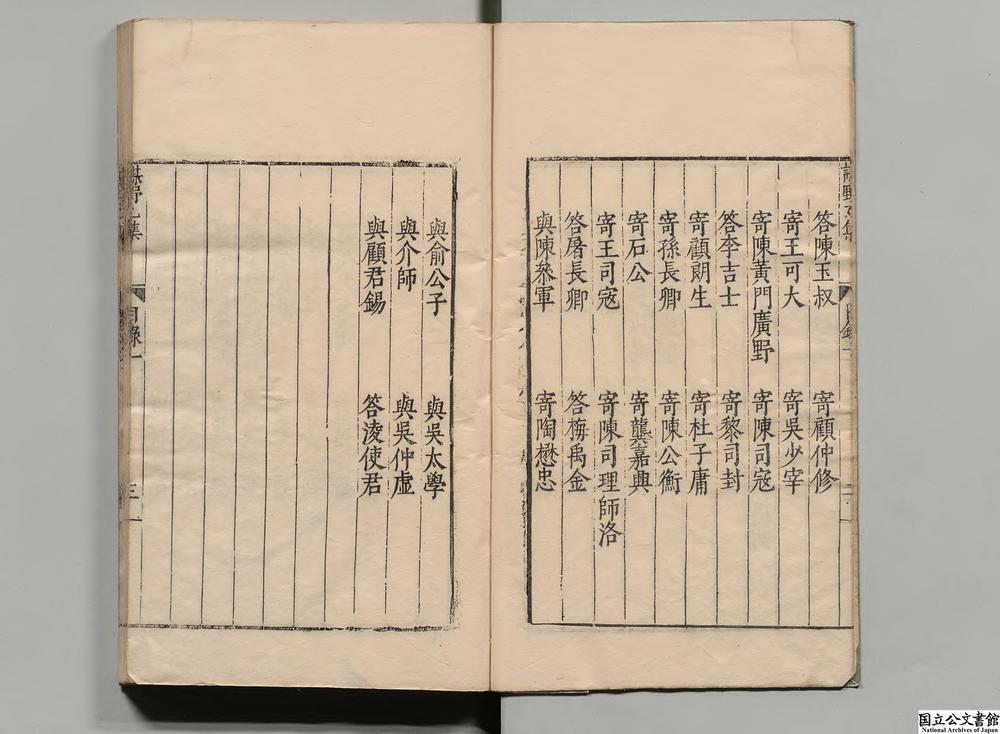 答陳玉叔　寄顧仲修
寄王可大　寄吳少宰
寄陳黃門廣野　寄陳司寇
答李吉士　寄黎司封
寄顧朗生　寄杜子庸
寄孫長卿　寄陳公衡
寄石公　寄龔嘉興
寄王司寇　寄陳司理師洛
答屠長卿　答梅禹金
與陳叅軍　寄陶懋忠
與俞公子　與吳太學
與介師　與吳仲虛
與顧君錫　答淩使君
目錄一
三
国立公文書館
National Archives of Japan